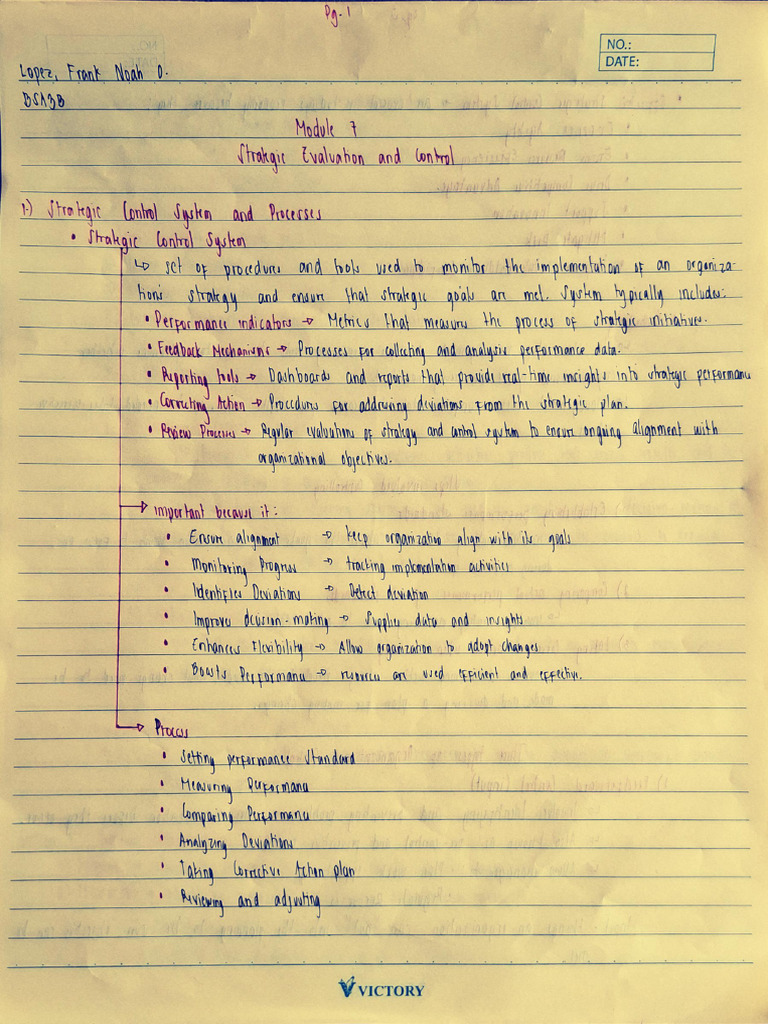 Pg. 1
NO.:
DATE:
Lopez, Frank Noah O.
BSA3B
Module 7
Strategic Evaluation and Control
1.) Strategic Control System and Processes
• Strategic Control System
↳ Set of procedures and tools used to monitor the implementation of an organiza-
tions strategy and ensure that strategic goals are met. System typically includes:
• Performance indicators → Metrics that measures the process of strategic initiatives.
• Feedback Mechanisms → Processes for collecting and analysis performance data.
• Reporting tools → Dashboards and reports that provide real-time insights into strategic performance
• Correcting Action → Procedures for addressing deviations from the strategic plan.
• Review Processes → Regular evaluations of strategy and control system to ensure ongoing alignment with
organizational objectives.
→ important because it:
• Ensure alignment → keep organization align with its goals
• Monitoring Progress → tracking implementation activities
• Identifies Deviations → Detect deviation
• Improves decision-making → Supplies data and insights
• Enhances Flexibility → Allow organization to adopt changes
• Boosts Performance → resources are used efficient and effective.
→ Process
• Setting performance Standard
• Measuring Performance
• Comparing Performance
• Analyzing Deviations
• Taking Corrective Action plan
• Reviewing and adjusting
VICTORY